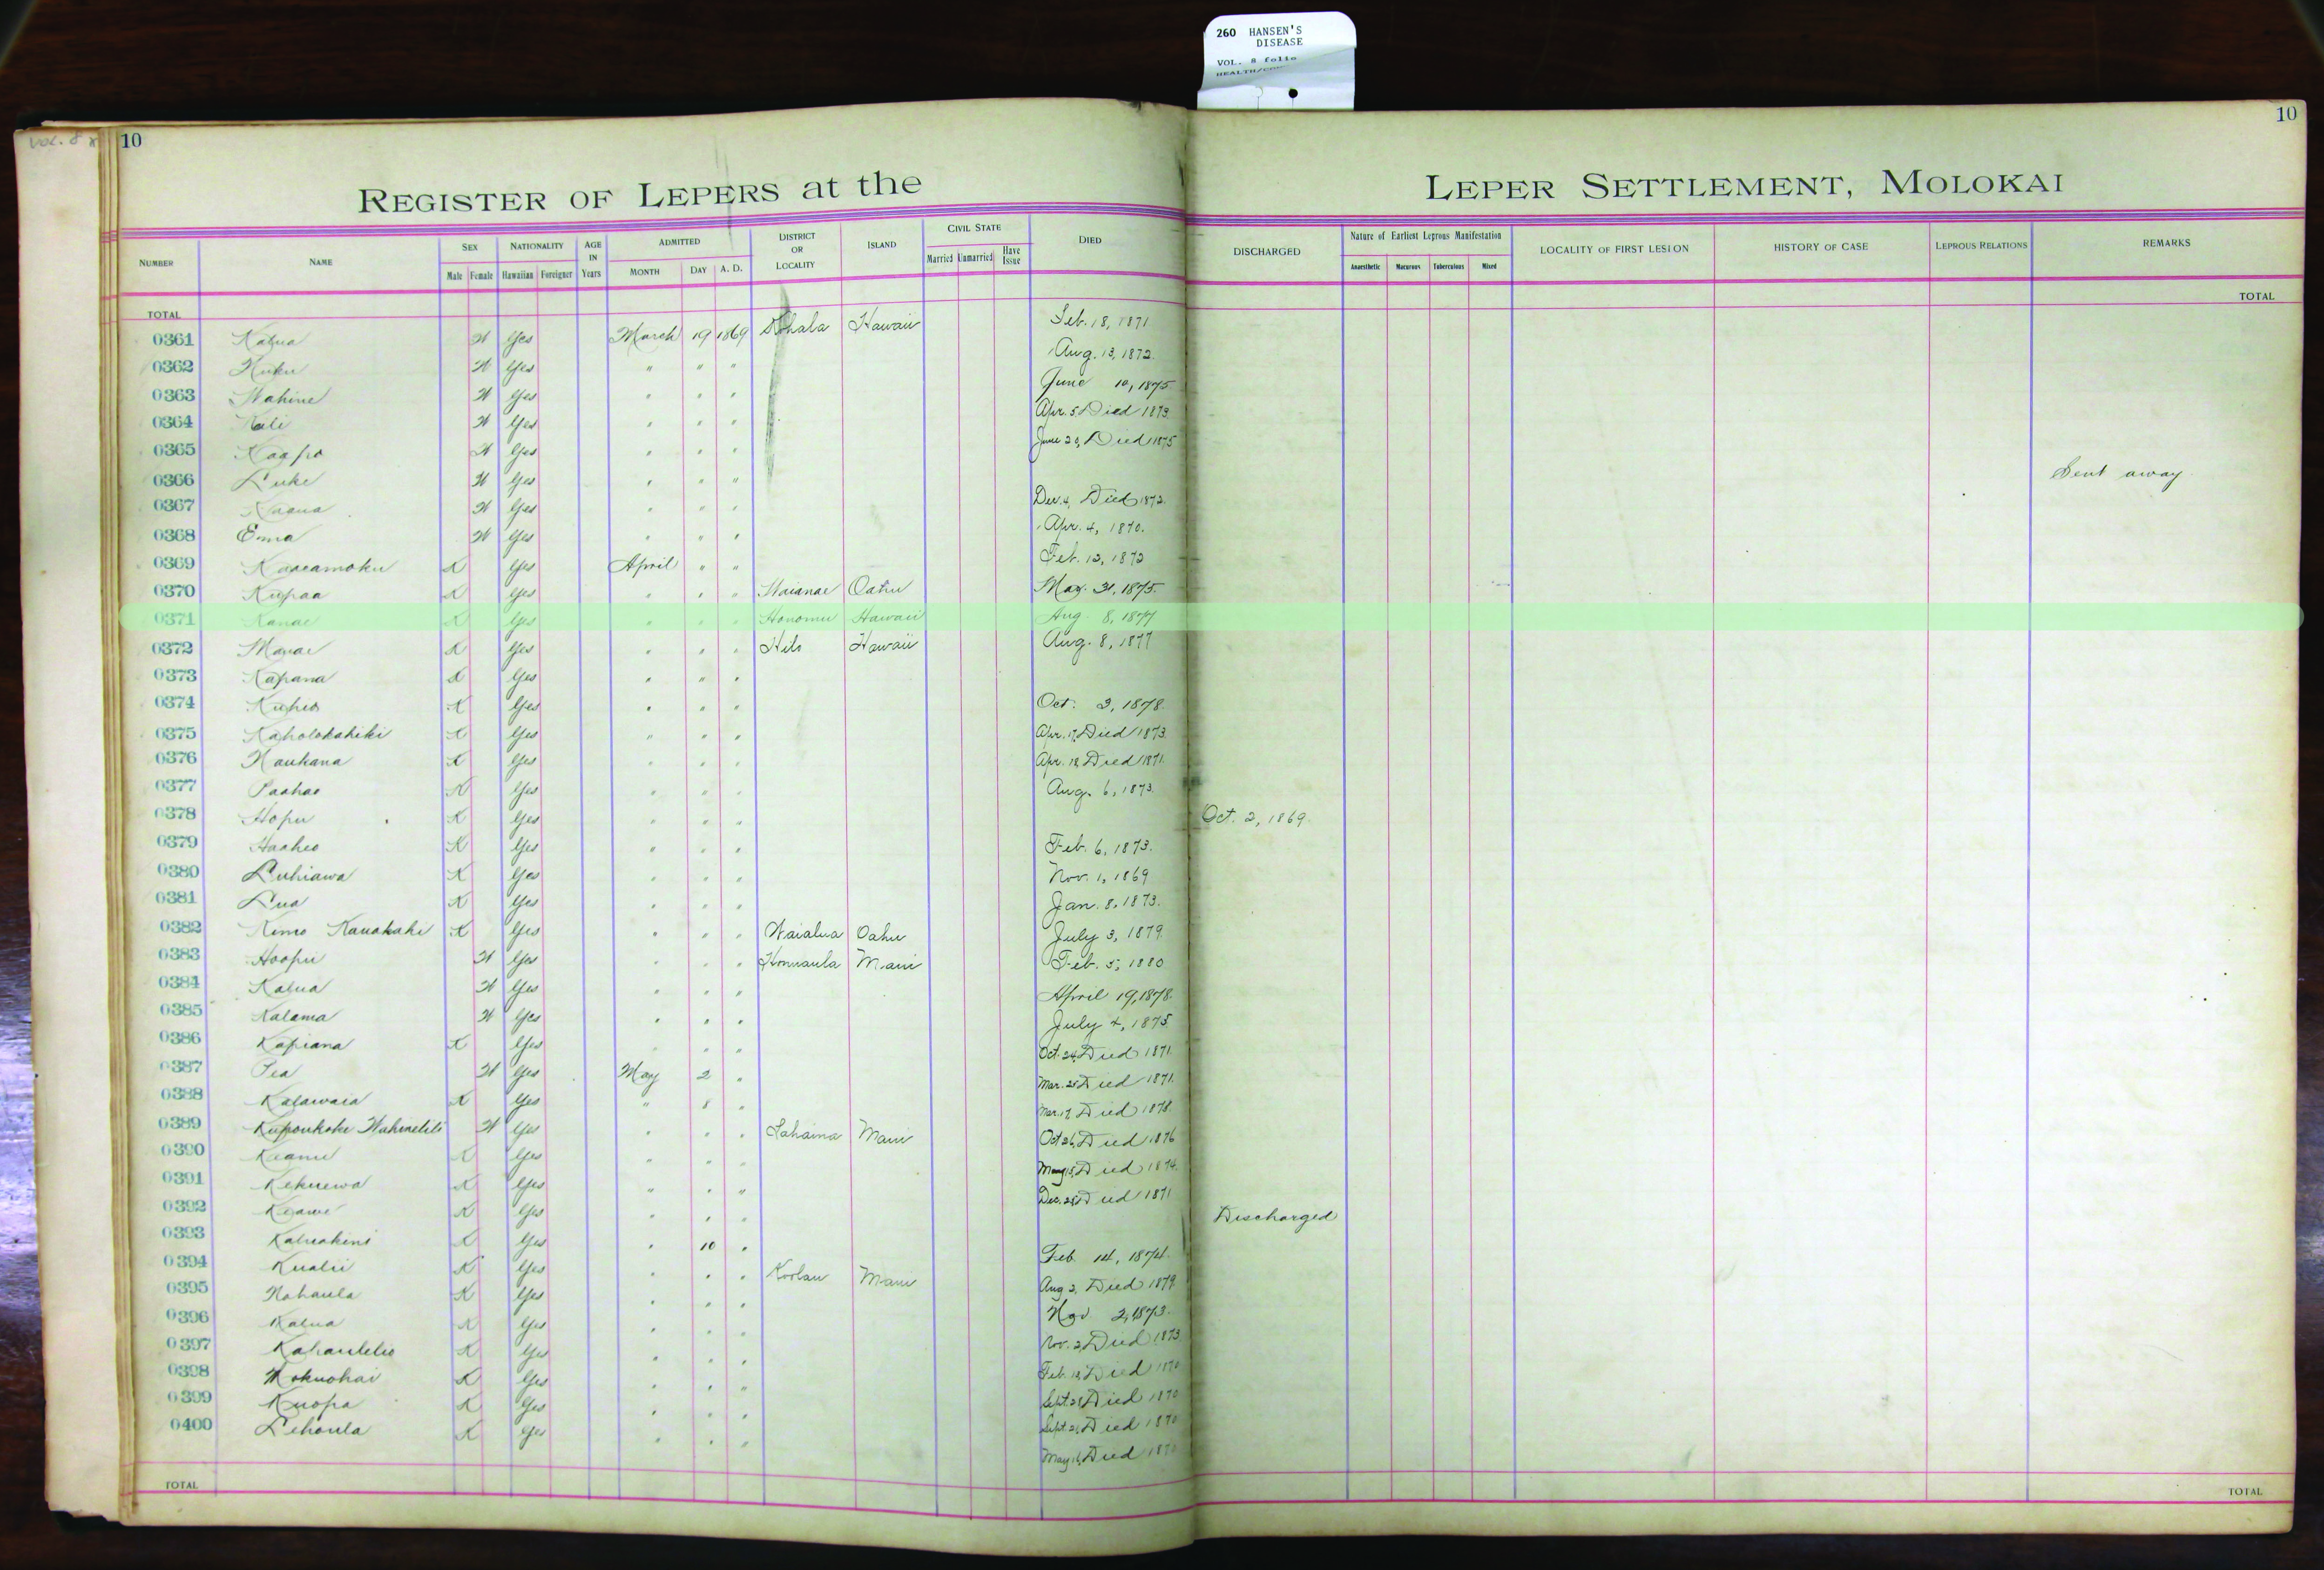 260 HANSEN'S
DISEASE
VOL. 8 folio
VOL. 8
10
10
REGISTER OF LEPERS at the LEPER SETTLEMENT, MOLOKAI
NUMBER NAME SEX Male Female NATIONALITY Hawaiian Foreigner AGE IN Years ADMITTED MONTH DAY A. D. DISTRICT OR LOCALITY ISLAND CIVIL STATE Married Unmarried Have Issue DIED DISCHARGED Nature of Earliest Leprous Manifestation Anaesthetic Macurous Tuberculous Mixed LOCALITY OF FIRST LESION HISTORY OF CASE LEPROUS RELATIONS REMARKS
TOTAL TOTAL
0361 Kalua W Yes March 19 1869 Kohala Hawaii Feb. 18, 1871
0362 Kuku W Yes " " " Aug. 13, 1872.
0363 Wahine W Yes " " " June 10, 1875
0364 Kali W Yes " " " Apr. 5 Died 1873.
0365 Kaapo W Yes " " " June 20, Died 1875
0366 Luke W Yes " " " Sent away
0367 W Yes " " " Dec. 4, Died 1872.
0368 Emma W Yes " " " Apr. 4, 1870.
0369 Kaaeamoku K Yes April " " Feb. 12, 1872
0370 Kupaa K Yes " " " Waianae Oahu May. 31, 1875.
0371 Kanae K Yes " " " Honomu Hawaii Aug. 8, 1877
0372 Manae K Yes " " " Hilo Hawaii Aug. 8, 1877
0373 Kapana K Yes " " "
0374 Kuheo K Yes " " " Oct. 3, 1878.
0375 Kaholokahiki K Yes " " " Apr. 17, Died 1873.
0376 Naukana K Yes " " " Apr. 18 Died 1871.
0377 Paahao K Yes " " " Aug. 6, 1873.
0378 Hopu K Yes " " " Oct. 2, 1869.
0379 Haaheo K Yes " " " Feb. 6, 1873.
0380 Luhiawa K Yes " " " Nov. 1, 1869
0381 Lua K Yes " " " Jan. 8, 1873.
0382 Kimo Kauakahi K Yes " " " Waialua Oahu July 3, 1879.
0383 Hoopii W Yes " " " Honuaula Maui Feb. 5, 1880
0384 Kalua W Yes " " " April 19, 1878.
0385 Kalama W Yes " " " July 4, 1875.
0386 Kapiana K Yes " " " Oct. 24, Died 1871.
0387 Pea W Yes May 2 " Mar. 25 Died 1871.
0388 Kalawaia K Yes " 8 " Mar. 17, Died 1878.
0389 W Yes " " " Lahaina Maui Oct 26, Died 1876
0390 Keanu K Yes " " " May 15, Died 1874.
0391 Kekuewa K Yes " " " Dec. 28 Died 1871
0392 Keawe K Yes " " " Discharged
0393 Kaluakini K Yes " 10 " Feb. 14, 1874.
0394 Kualii K Yes " " " Koolau Maui Aug 2, Died 1879.
0395 Nohaula K Yes " " " Nov 2, 1873.
0396 Kalua K Yes " " " Nov. 2, Died 1873
0397 Kahaulelio K Yes " " " Feb. 18, Died 1870
0398 Mokuohai K Yes " " " Sept. 28 Died 1870
0399 Kuopa K Yes " " " Sept. 21, Died 1870
0400 Lehoula K Yes " " " May 16, Died 1870
TOTAL TOTAL